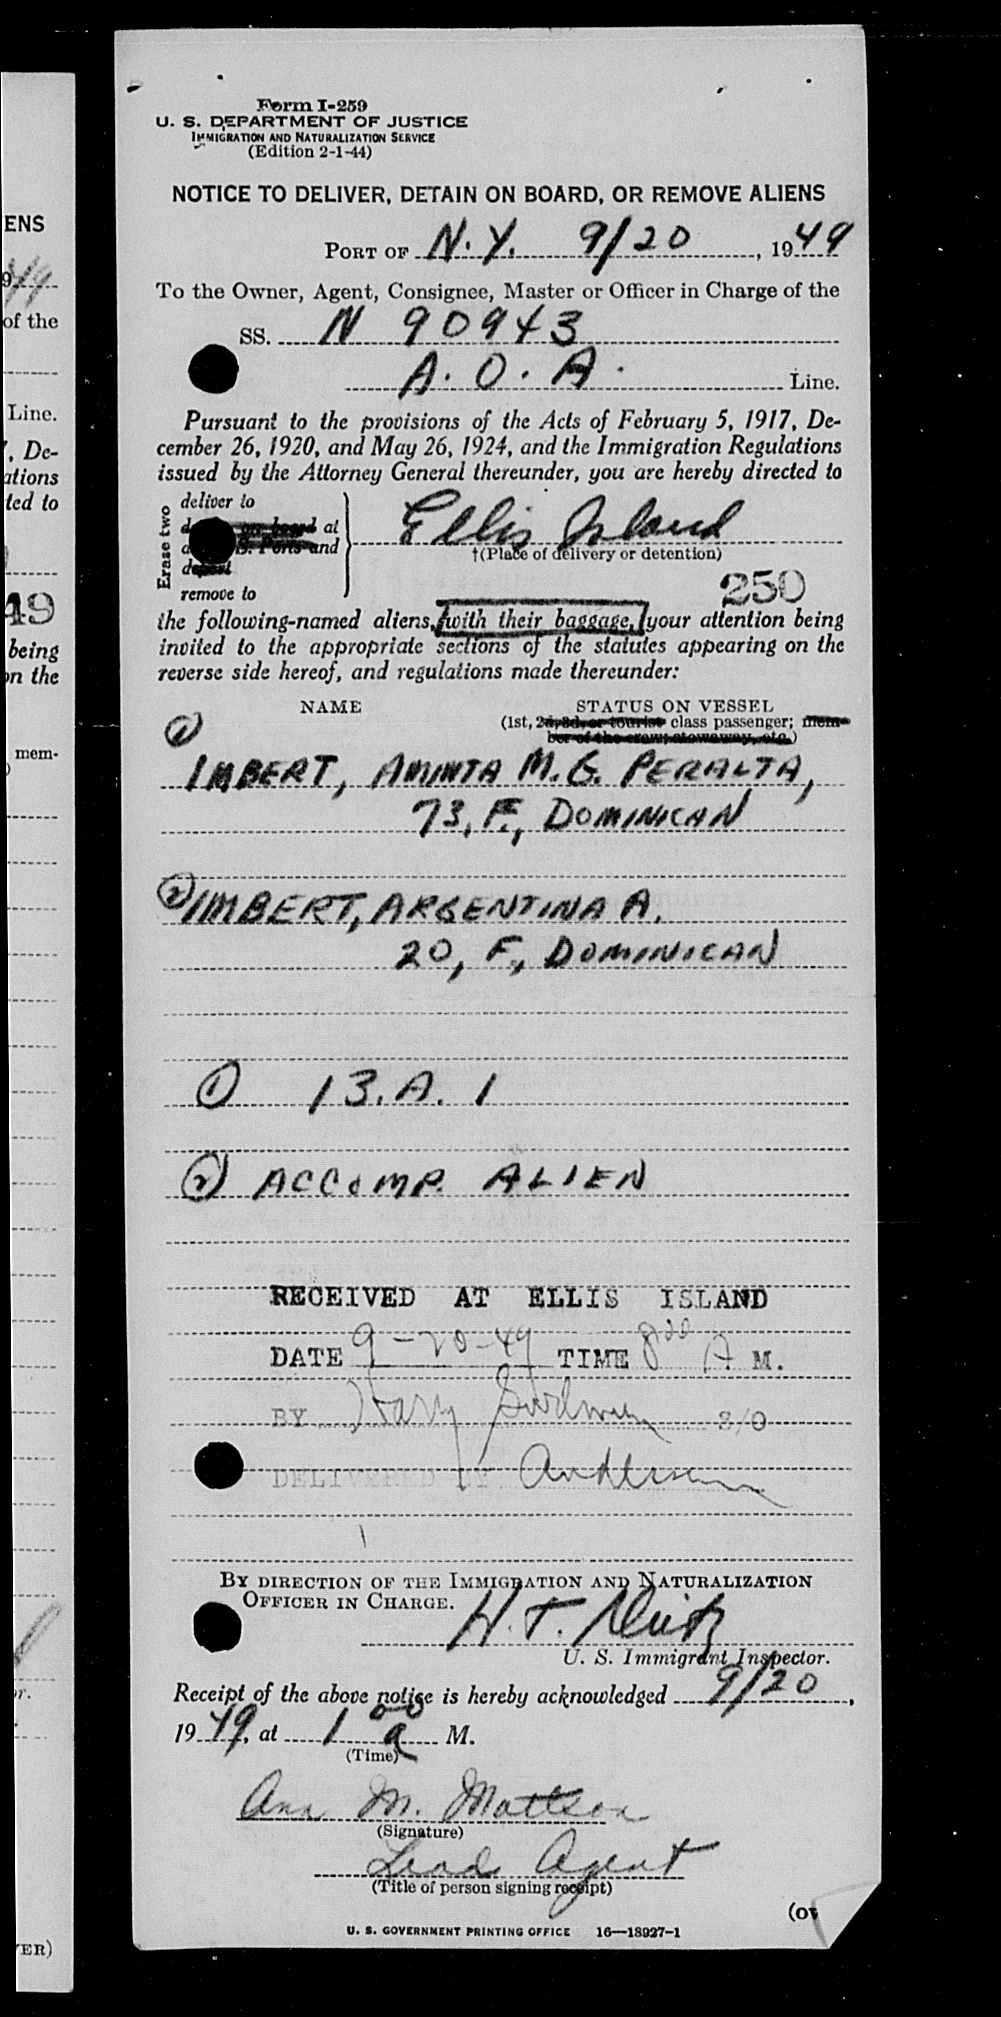 ENS
9/49
of the
Line.
, De-
ations
ted to
49
being
on the
mem-
)
or.
VER)
Form I-259
U. S. DEPARTMENT OF JUSTICE
IMMIGRATION AND NATURALIZATION SERVICE
(Edition 2-1-44)
NOTICE TO DELIVER, DETAIN ON BOARD, OR REMOVE ALIENS
PORT OF N.Y. 9/20, 1949
To the Owner, Agent, Consignee, Master or Officer in Charge of the
SS. N 90943
A.O.A. Line.
Pursuant to the provisions of the Acts of February 5, 1917, De-
cember 26, 1920, and May 26, 1924, and the Immigration Regulations
issued by the Attorney General thereunder, you are hereby directed to
Erase two
deliver to
on board at
Ports and
depost
remove to
Ellis Island
†(Place of delivery or detention)
250
the following-named aliens, with their baggage, your attention being
invited to the appropriate sections of the statutes appearing on the
reverse side hereof, and regulations made thereunder:
NAME STATUS ON VESSEL
(1st, 2d, 3d, or tourist class passenger; mem-
ber of the crew; stowaway, etc.)
① IMBERT, AMINTA M. G. PERALTA,
73, F., DOMINICAN
② IMBERT, ARGENTINA A.
20, F., DOMINICAN
① 13.A.1
② ACCOMP. ALIEN
RECEIVED AT ELLIS ISLAND
DATE 9-20-49 TIME 8 00 A M.
BY Harry S/O
DELIVERED BY Anderson
BY DIRECTION OF THE IMMIGRATION AND NATURALIZATION
OFFICER IN CHARGE.
H.T.
U. S. Immigrant Inspector.
Receipt of the above notice is hereby acknowledged 9/20,
1949, at 1 00 a M.
(Time)
Ann M. Mattson
(Signature)
Lead Agent
(Title of person signing receipt)
(ov
U. S. GOVERNMENT PRINTING OFFICE 16—18927-1